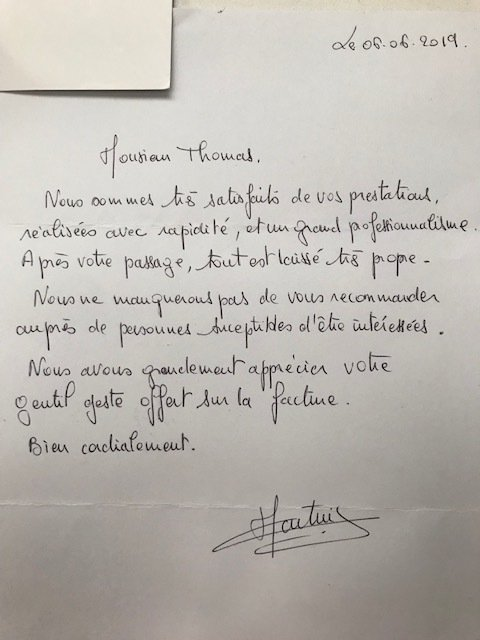 Le 06.06.2019.
Monsieur Thomas.
Nous sommes très satisfaits de vos prestations,
réalisées avec rapidité, et un grand professionnalisme.
Après votre passage, tout est laissé très propre.
Nous ne manquerons pas de vous recommander
auprès de personnes suceptibles d'être intéressées.
Nous avons grandement apprécier votre
gentil geste offert sur la facture.
Bien cordialement.